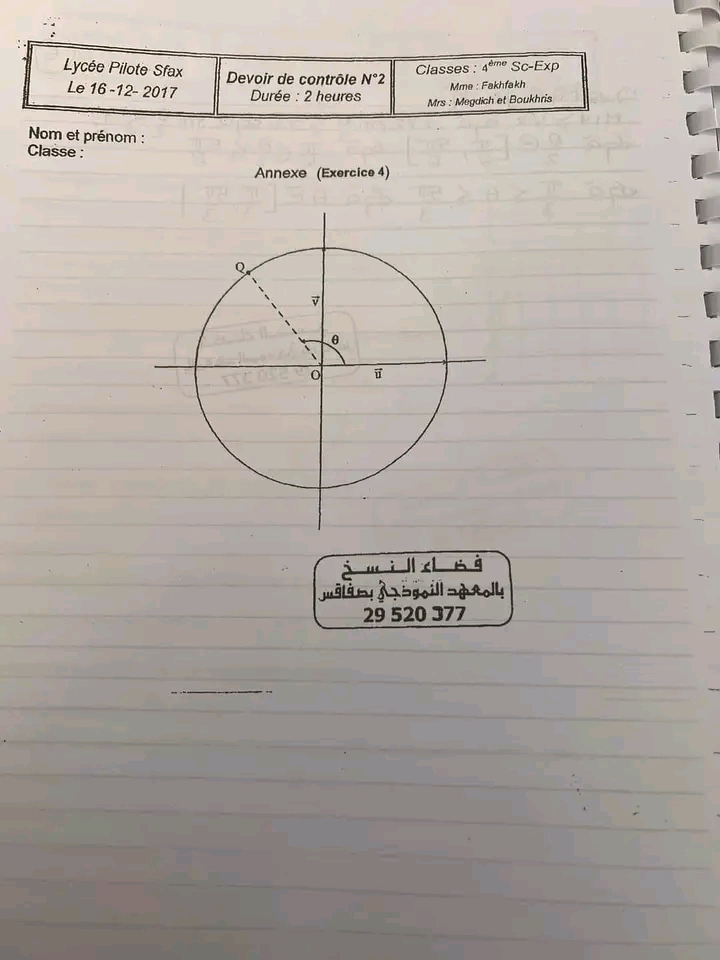 Lycée Pilote Sfax
Le 16-12-2017
Devoir de contrôle N°2
Durée : 2 heures
Classes : 4ème Sc-Exp
Mme : Fakhfakh
Mrs : Megdich et Boukhris
Nom et prénom :
Classe :
Annexe (Exercice 4)
Q
v
θ
O
u
فضاء النسخ
بالمعهد النموذجي بصفاقس
29 520 377